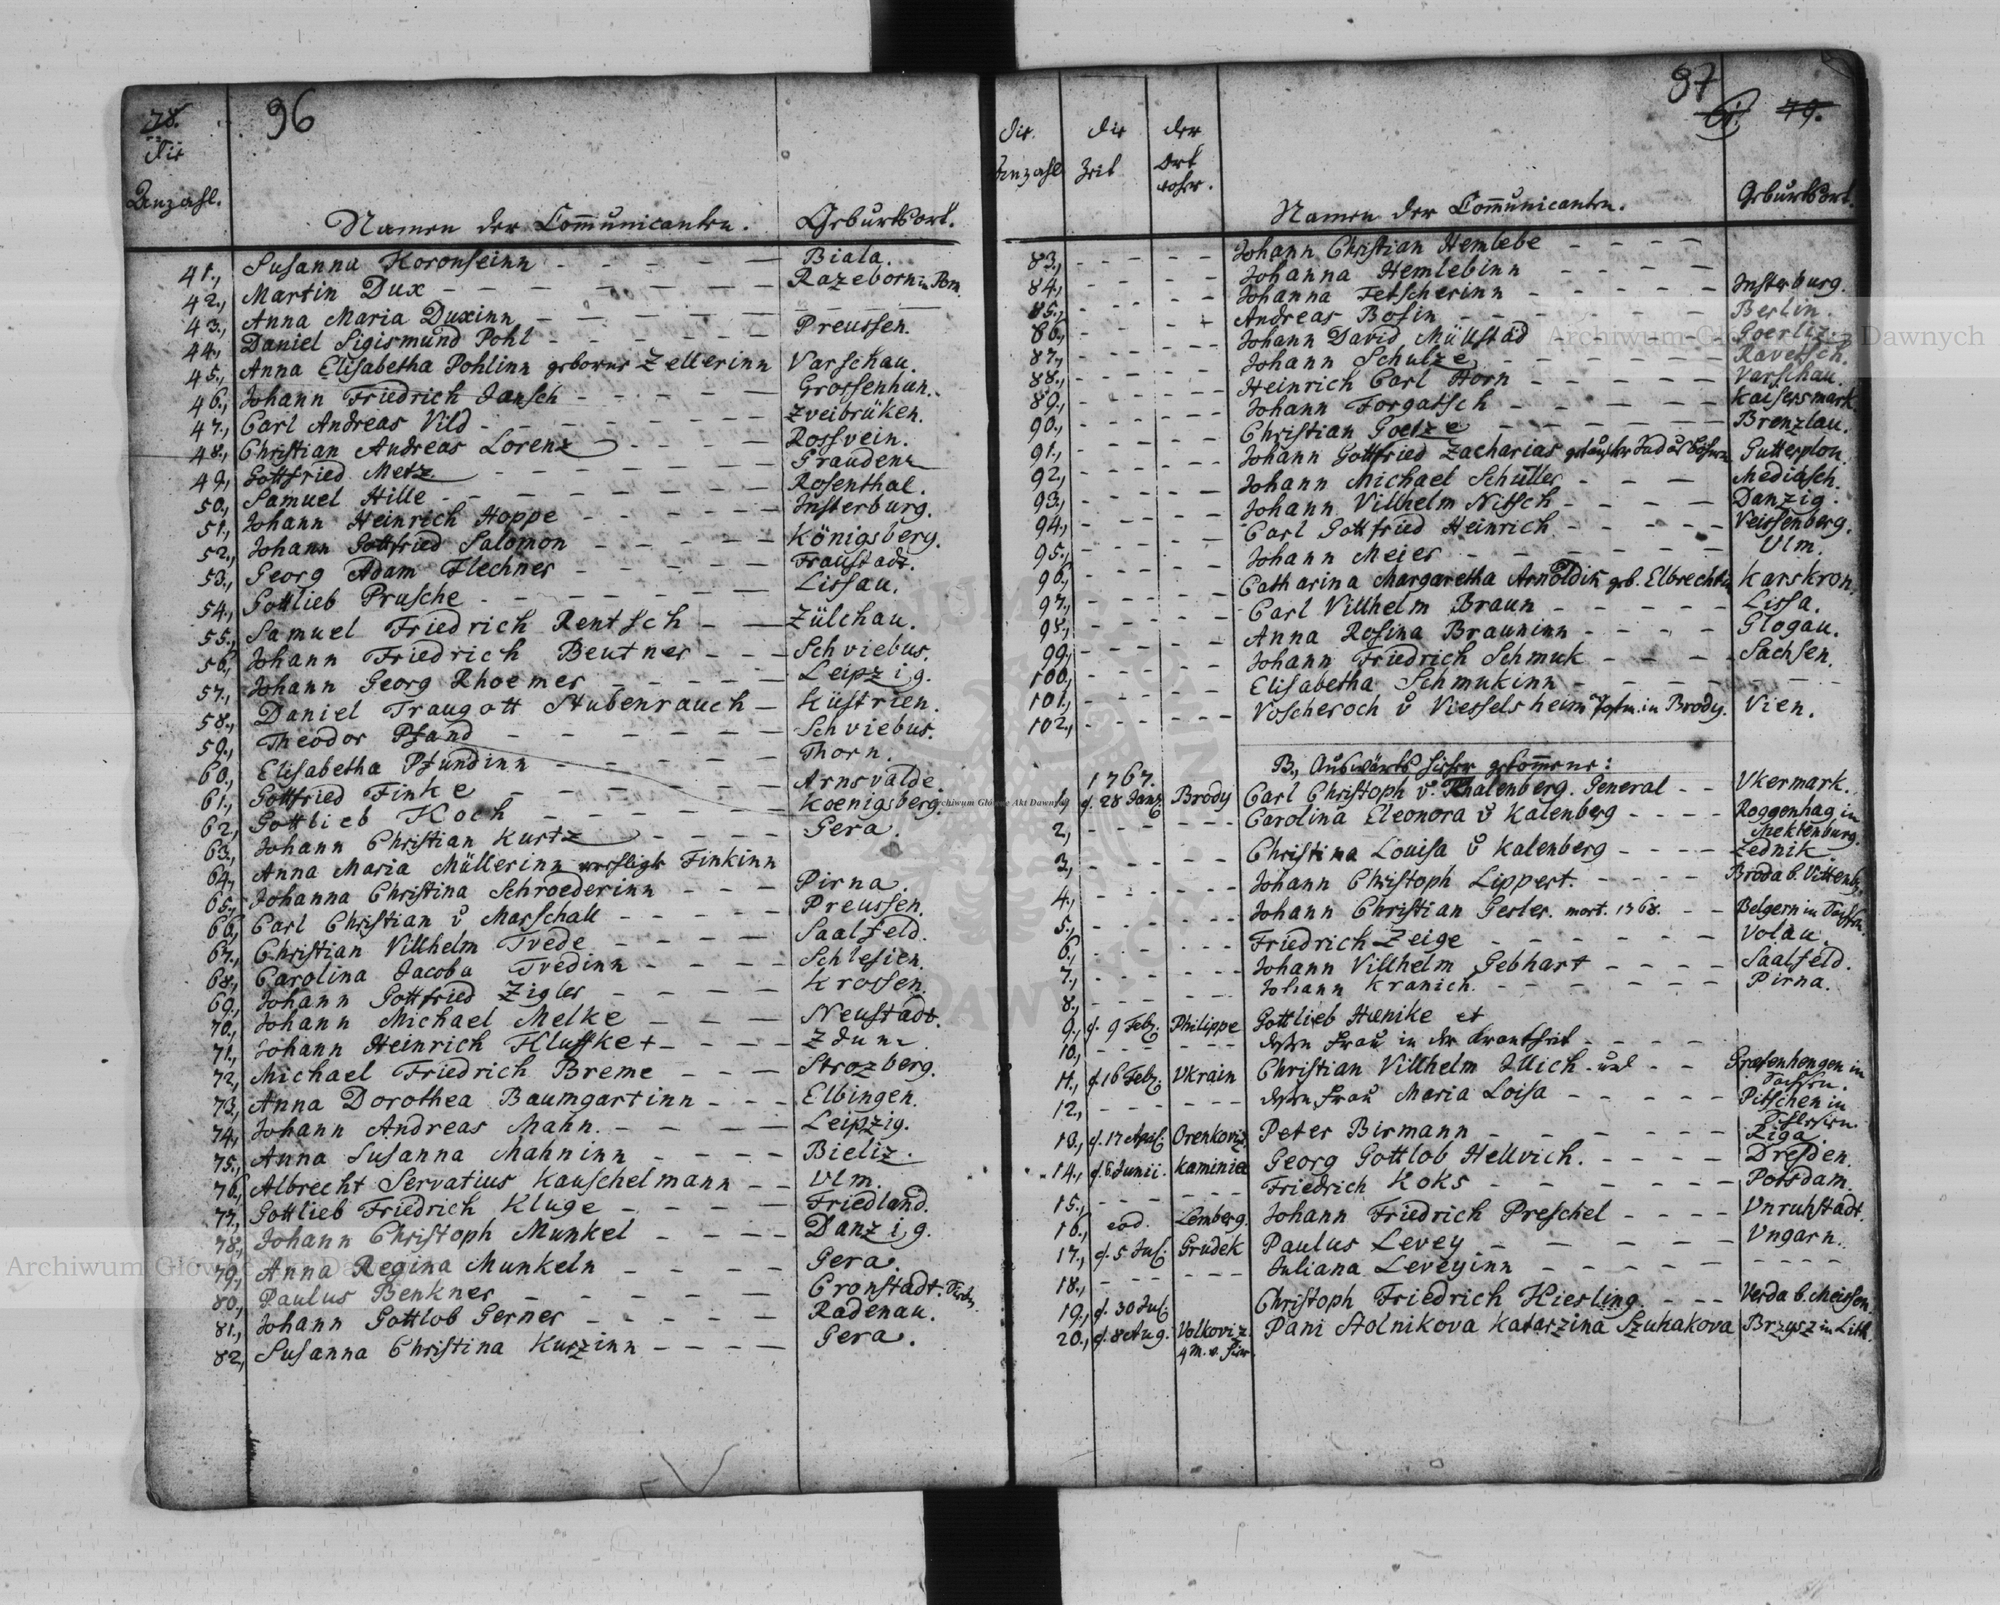 78. 96
die
Anzahl.
Namen der Com̅unicanten. Geburtsort.
41., Susanna Koronseinn Biala.
42., Martin Dux Razeborn in Pom.
43., Anna Maria Duxinn
44., Daniel Sigismund Pohl Preussen.
45., Anna Elisabetha Pohlinn geborne Zellerinn Varschau.
46., Johann Friedrich Jansch Grossenhæn.
47., Carl Andreas Vild Zveibrüken.
48., Christian Andreas Lorenz Rossvein.
49., Gottfried Metz Graudenz
50., Samuel Hille Rosenthal.
51., Johann Heinrich Hoppe Insterburg.
52., Johann Gottfried Salomon Königsberg.
53., Georg Adam Flechner Fraustadt.
54., Gottlieb Prusche Lissau.
55., Samuel Friedrich Rentsch Zülchau.
56., Johann Friedrich Beutner Schviebus.
57., Johann Georg Rhoemer Leipzig.
58., Daniel Traugott Stubenrauch Küstrien.
59., Theodor Pfand Schviebus.
60., Elisabetha Pfundinn Thorn.
61., Gottfried Finke Arnsvalde.
62., Gottlieb Koch Koenigsberg.
63., Johann Christian Kurtz Gera.
64., Anna Maria Müllerinn Finkinn
65., Johanna Christina Schroederinn Pirna.
66., Carl Christian v Marschall Preussen.
67., Christian Villhelm Tvede Saalfeld.
68., Carolina Jacoba Tvedinn Schlesien.
69., Johann Gottfried Zigler Krossen.
70., Johann Michael Melke Neustadt.
71., Johann Heinrich Kluffket Zduni
72., Michael Friedrich Breme Strozberg.
73., Anna Dorothea Baumgartinn Elbingen.
74., Johann Andreas Mahn. Leipzig.
75., Anna Susanna Mahninn Bieliz.
76., Albrecht Servatius Kauschelmann Ulm.
77., Gottlieb Friedrich Kluge Friedland.
78., Johann Christoph Munkel Danzig.
79., Anna Regina Munkeln Gera.
80., Paulus Benkner Cronstadt.
81., Johann Gottlob Gerner Radenau.
82., Susanna Christina Kurzinn Gera.
97
79.
die Anzahl die Zeit der Ort woher. Namen der Com̅unicanten. Geburtsort.
83., Johann Christian Hemlebe
84., Johanna Hemlebinn
85., Johanna Fetscherinn Insterburg.
86., Andreas Bosin Berlin.
87., Johann David Müllstäd Goerliz.
88., Johann Schulze Ravetsch.
89., Heinrich Carl Horn Varschau.
90., Johann Forgatsch Kaisersmark
91., Christian Goetze Brenzlau.
92., Johann Gottfried Zacharias Gutterplon.
93., Johann Michael Schüller Mediasch.
94., Johann Villhelm Nitsch Danzig.
95., Carl Gottfried Heinrich Veissenberg.
96., Johann Meier Ulm.
97., Catharina Margaretha Arnoldin geb. Elbrechtin Karskron.
98., Carl Villhelm Braun Lissa.
99., Anna Rosina Brauninn Glogau.
100., Johann Friedrich Schmuk Sachsen.
101., Elisabetha Schmukinn
102., Voscheroch v Viesselsheim in Brody. Vien.
B., Auswärts hieher gekommene:
1767.
1., d. 28 Jan. Brody Carl Christoph v. Kalenberg. General Ukermark.
2., Carolina Eleonora v Kalenberg Roggenhag in Meklenburg.
3., Christina Louisa v Kalenberg Zednik.
4., Johann Christoph Lippert. Broda b. Vittenb.
5., Johann Christian Gerler. mort. 1768. Belgern in Sachsen.
6., Friedrich Zeige Volau.
7., Johann Villhelm Gebhart Saalfeld.
8., Johann Kranich. Pirna.
9., d. 9 Feb. Philippe Gottlieb Hænike et
10., dessen Frau in der Krankheit
11., d. 16 Feb. Ukrain Christian Villhelm Illich. und Græfenhengen in Sachsen.
12., dessen Frau Maria Loisa Pitschen in Schlesien.
13., d. 17 April. Orenkoviz Peter Birmann Riga.
14., d. 6 Junii. Kaminiec Georg Gottlob Hellvich. Dresden.
15., Friedrich Koks Potsdam.
16., eod. Lemberg. Johann Friedrich Preschel Unruhstadt.
17., d. 5 Jul. Grudek Paulus Levey Ungarn.
18., Juliana Leveyinn
19., d. 30 Jul. Christoph Friedrich Hiesling. Verda b. Meissen
20., d. 8 Aug. Volkoviz. 4 M. v. hier. Pani Stolnikova Katarzina Szuhakova Brzysz in Lith.
Archiwum Główne Akt Dawnych